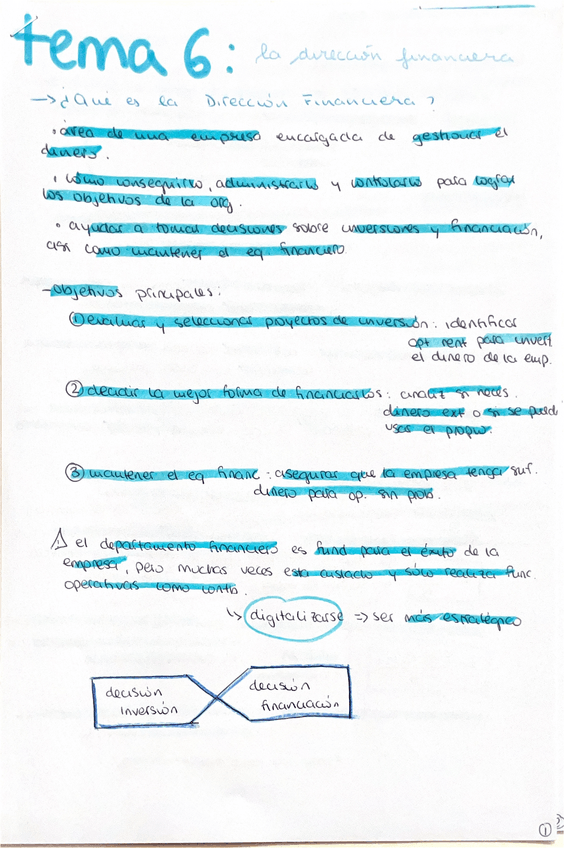 tema 6: la dirección financiera
→ ¿Qué es la Dirección Financiera?
· área de una empresa encargada de gestionar el
dinero.
· cómo conseguirlo, administrarlo y controlarlo para lograr
los objetivos de la org.
· ayudar a tomar decisiones sobre inversiones y financiación,
así como mantener el eq financiero
- objetivos principales:
① evaluar y seleccionar proyectos de inversión: identificar
opt rent para invert
el dinero de la emp.
② decidir la mejor forma de financiarlos: analit si neces.
dinero ext o si se puede
usar el propio.
③ mantener el eq financ: asegurar que la empresa tenga suf.
dinero para op. sin prob.
⚠ el departamento financiero es fund para el éxito de la
empresa, pero muchas veces esta aislado y sólo realiza func.
operativas como contb.
↳ digitalizarse => ser más estratégico
decisión
inversión
decisión
financiación
①